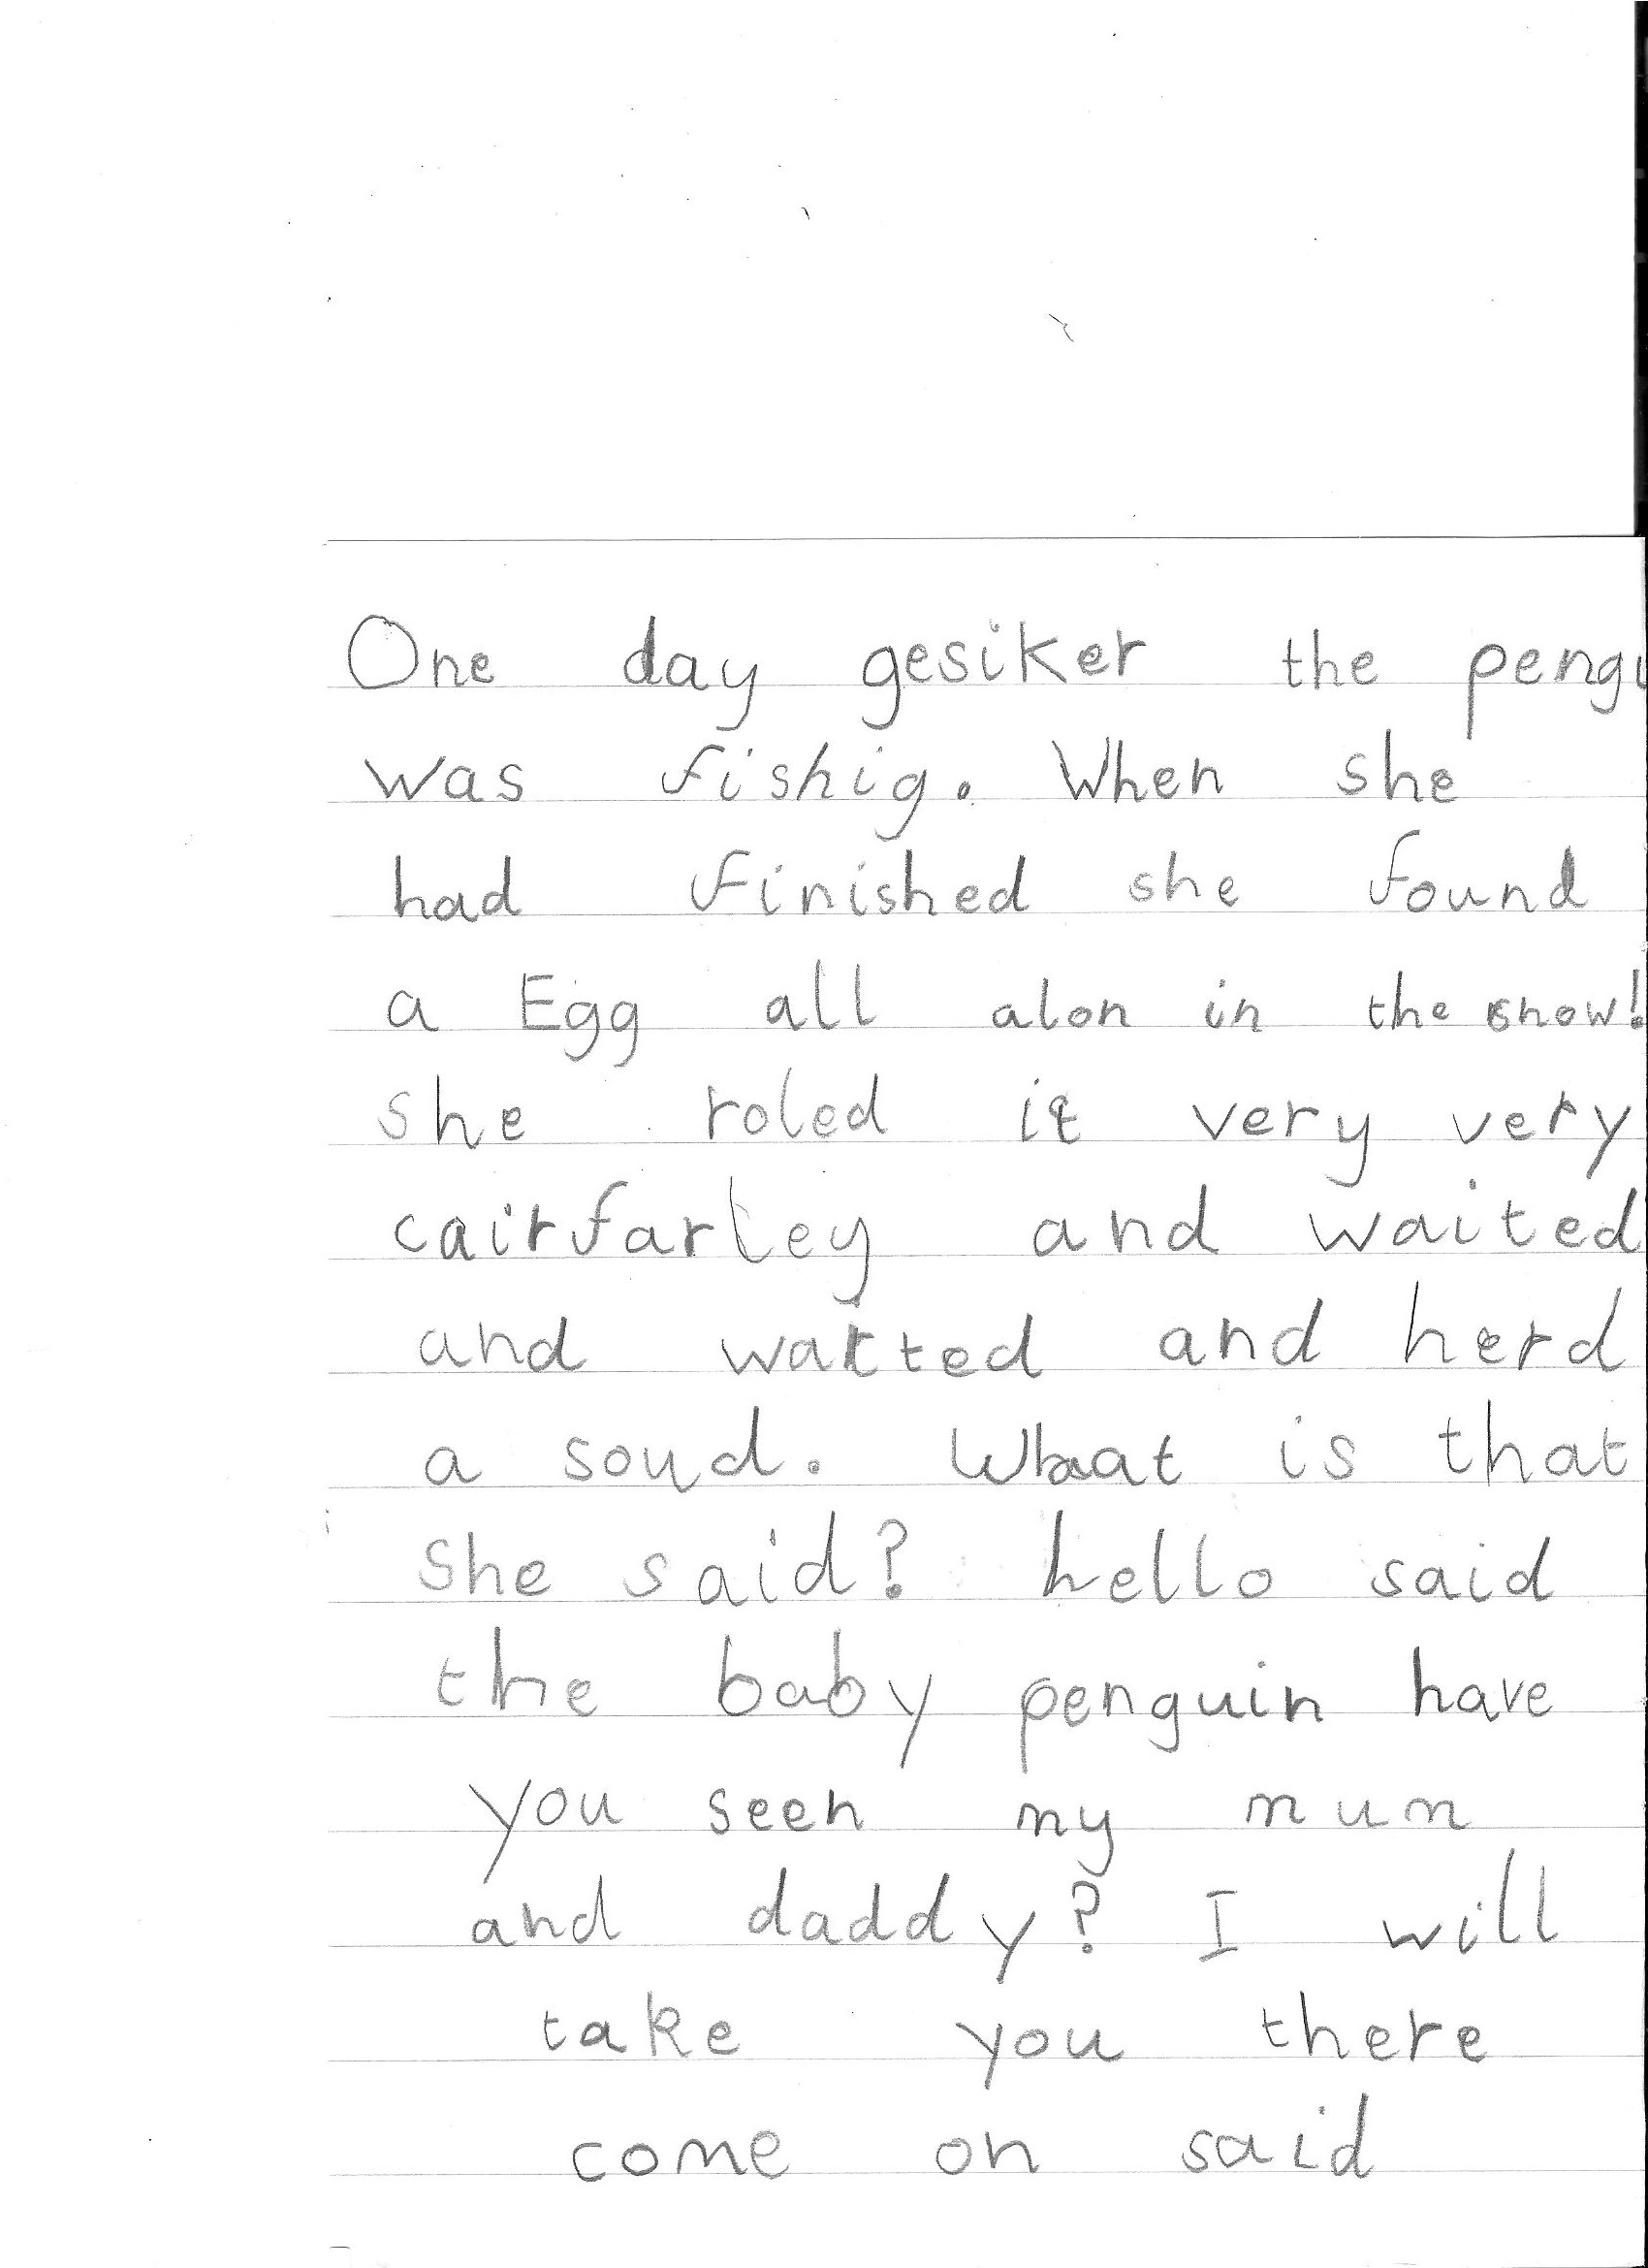 One day gesiker the pengu
was fishig. When she
had finished she found
a Egg all alon in the snow!
she roled it very very
cairfarley and waited
and waited and herd
a soud. What is that
She said? hello said
the baby penguin have
you seen my mum
and daddy? I will
take you there
come on said